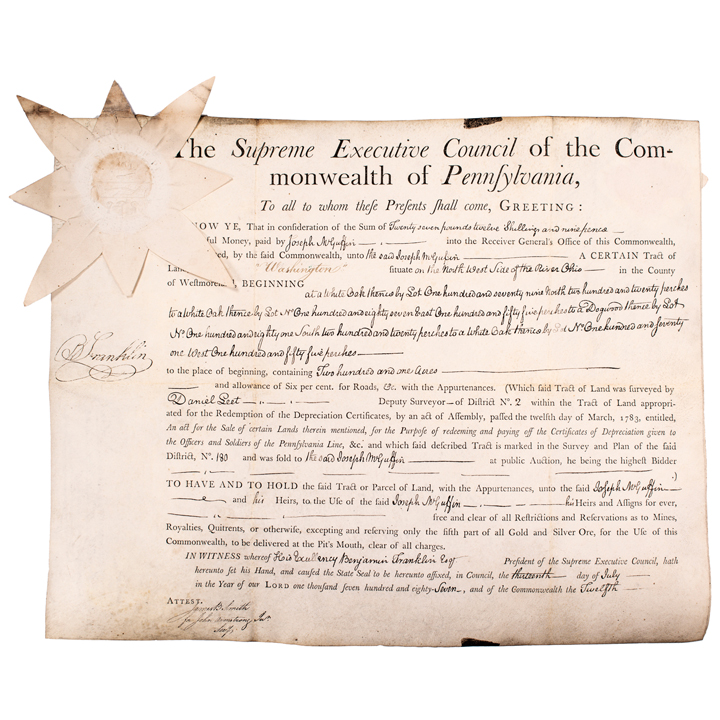 The Supreme Executive Council of the Com-
monwealth of Pennſylvania,
To all to whom theſe Preſents ſhall come, GREETING:
NOW YE, That in conſideration of the Sum of Twenty seven pounds twelve Shillings and nine pence
ful Money, paid by Joseph McGuffin into the Receiver General's Office of this Commonwealth,
ed, by the ſaid Commonwealth, unto the said Joseph McGuffin A CERTAIN Tract of
Land "Washington" ſituate on the North West Side of the River Ohio in the County
of Weſtmoreland, BEGINNING
at a White Oak thence by Lot One hundred and seventy nine North two hundred and twenty perches
to a White Oak thence by Lot No. One hundred and eighty seven East One hundred and fifty five perches to a Dogwood thence by Lot
No. One hundred and eighty one South two hundred and twenty perches to a White Oak Thence by No. One hundred and seventy
one West One hundred and fifty five perches
B Franklin
to the place of beginning, containing Two hundred and one Acres
and allowance of Six per cent. for Roads, &c. with the Appurtenances. (Which ſaid Tract of Land was ſurveyed by
Daniel Leet Deputy Surveyor of Diſtrict No. 2 within the Tract of Land appropri-
ated for the Redemption of the Depreciation Certificates, by an act of Aſſembly, paſſed the twelfth day of March, 1783, entitled,
An act for the Sale of certain Lands therein mentioned, for the Purpoſe of redeeming and paying off the Certificates of Depreciation given to
the Officers and Soldiers of the Pennſylvania Line, &c. and which ſaid deſcribed Tract is marked in the Survey and Plan of the ſaid
Diſtrict, No. 180 and was ſold to the said Joseph McGuffin at public Auction, he being the higheſt Bidder
.)
TO HAVE AND TO HOLD the ſaid Tract or Parcel of Land, with the Appurtenances, unto the ſaid Joseph McGuffin
and his Heirs, to the Uſe of the ſaid Joseph McGuffin his Heirs and Aſſigns for ever,
free and clear of all Reſtrictions and Reſervations as to Mines,
Royalties, Quitrents, or otherwiſe, excepting and reſerving only the fifth part of all Gold and Silver Ore, for the Uſe of this
Commonwealth, to be delivered at the Pit's Mouth, clear of all charges.
IN WITNESS whereof His Excellency Benjamin Franklin Esqr Preſident of the Supreme Executive Council, hath
hereunto ſet his Hand, and cauſed the State Seal to be hereunto affixed, in Council, the thirteenth day of July
in the Year of our LORD one thouſand ſeven hundred and eighty-Seven, and of the Commonwealth the Twelfth
ATTEST.
James R. Smith
for John Armstrong Jr.
Secy.